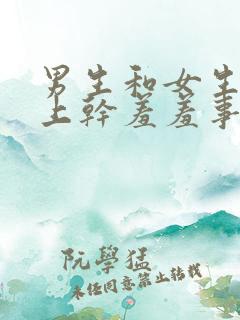 男生和女生
上幹羞羞事
阮學猛
未任同意禁止轉載